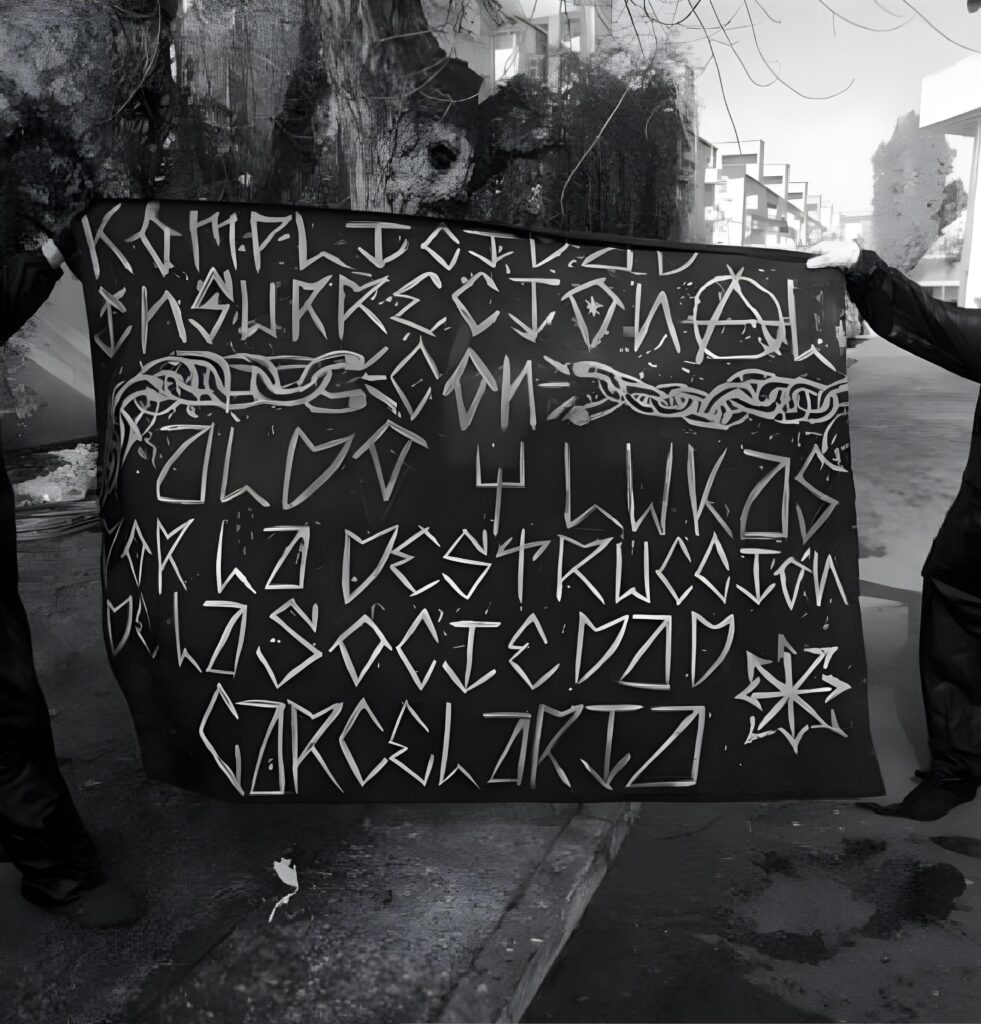 KOMPLICIDAD
INSURRECCIONAL
CON
ALDO Y LUKAS
POR LA DESTRUCCIÓN
DE LA SOCIEDAD
CARCELARIA